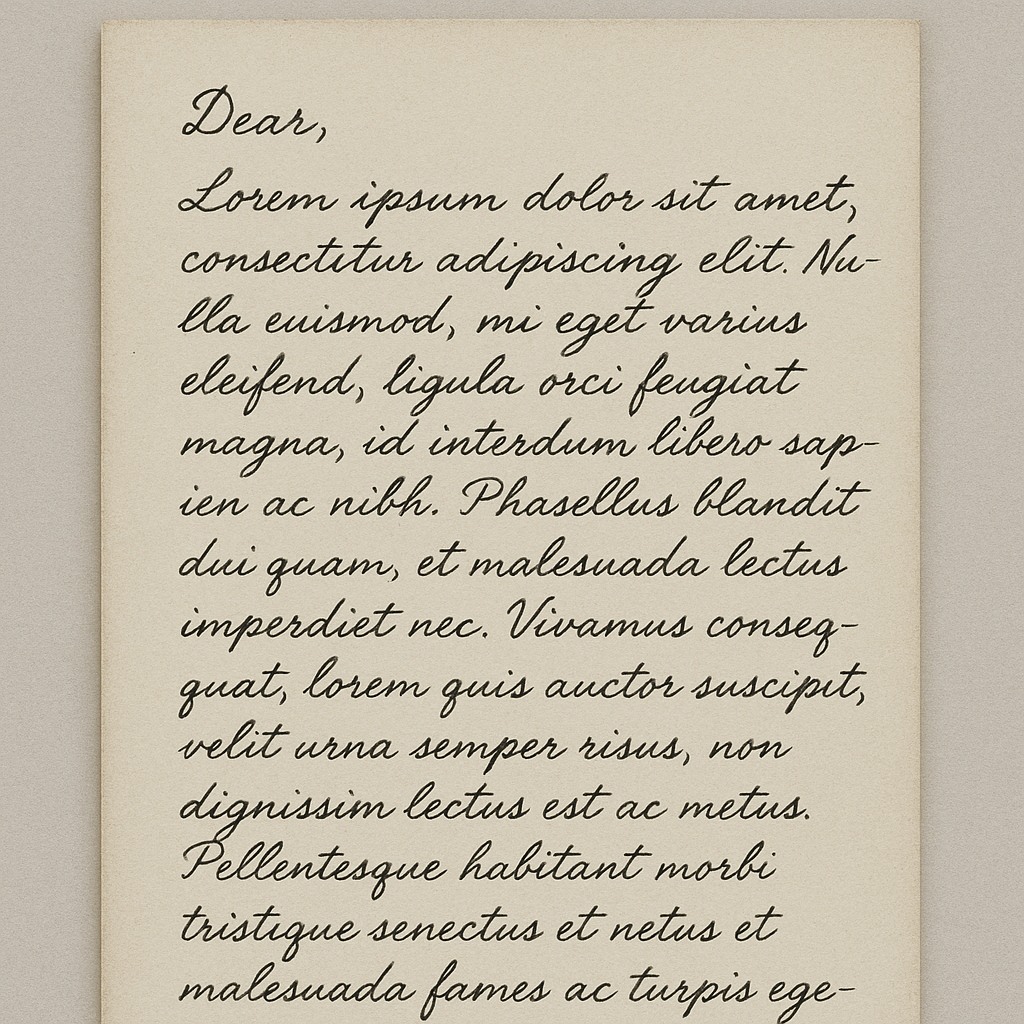 Dear,
Lorem ipsum dolor sit amet,
consectitur adipiscing elit. Nu-
lla euismod, mi eget varius
eleifend, ligula orci feugiat
magna, id interdum libero sap-
ien ac nibh. Phasellus blandit
dui quam, et malesuada lectus
imperdiet nec. Vivamus conseq-
quat, lorem quis auctor suscipit,
velit urna semper risus, non
dignissim lectus est ac metus.
Pellentesque habitant morbi
tristique senectus et netus et
malesuada fames ac turpis ege-